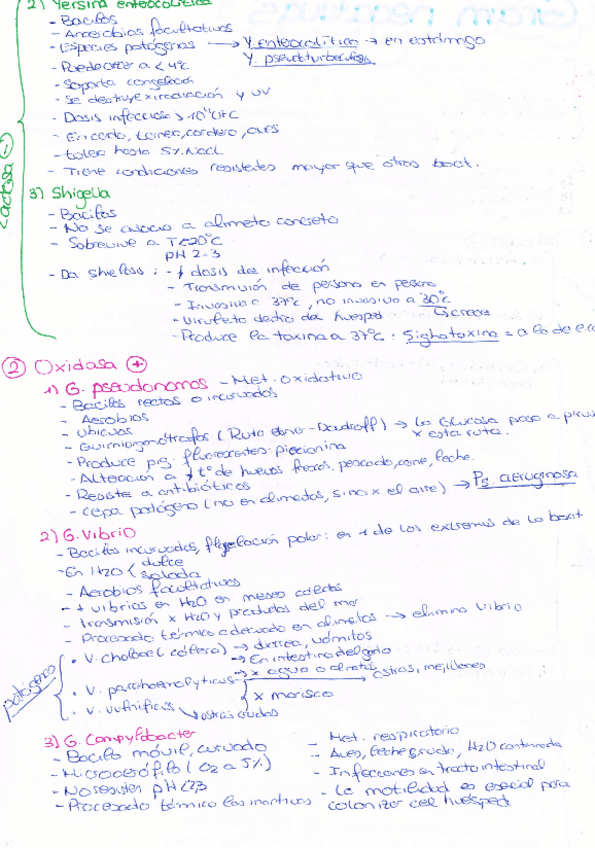 2) Yersina enteocolitica
- Bacilos
- Anaerobios facultativos
- Especies patógenas → Y. enteocolítica → en estómago
Y. pseudotuberculosis
- Puede crecer a < 4ºC
- Soporta congelación
- Se destruye x irradiación y UV
- Dosis infecciosa > 10 UFC
- En cerdo, carnea, cordero, aves
- tolera hasta 5% NaCl
- Tiene condiciones resistentes mayor que otras bact.
Lactosa (-)
3) Shigella
- Bacilos
- No se asocia a alimeto concreto
- Sobrevive a Tº<20ºC
pH 2-3
- Da shielosis : - ↓ dosis de infección
- Transmisión de persona en persona
- Invasiva a 37ºC, no invasiva a 30ºC
↳ crece
- Virulento dentro del huesped
- Produce la toxina a 37ºC : Sighatoxina = a la de
② Oxidasa (+)
1) G. pseudonomos - Met. oxidativo
- Bacilos rectos o incurvados
- Aerobios
- Ubicuos
- Quimiorganótrofos (Ruta -Doudroff) → la Glucosa pasa a
x esta ruta.
- Produce pig. fluorescentes: piocionina
- Alteración a ↓ tº de huevos frescos, pescado, carne, leche.
- Resiste a antibióticos
- cepa patógeno (no en alimentos, sino x el aire) → Ps. aeruginosa
2) G. Vibrio
- Bacilos incurvados, flagelación polar: en 1 de los extremos de la bact
- En H2O { dulce
salada
- Aerobios facultativos
- + vibrios en H2O en meses calidos
- Transmisión x H2O y productos del mar
- Procesado térmico adecuado en alimetos → elimina Vibrio
patógenos
• V. cholerae (cólera) → diarrea, vómitos
→ En intestino delgado
→ x agua o alimetos
• V. parahaemolyticus → ostras, mejillones
x marisco
• V. vulnificus → ostras crudas
3) G. Campylobacter
- Bacilo móvil, curvado
- Microaerófilo (O2 a 5%)
- No resisten pH < 7,3
- Procesado térmico las inactivas
- Met. respiratorio
- Aves, leche cruda, H2O contaminada
- Infecciones en tracto intestinal
- La motilidad es esecial para
colonizar cel huésped